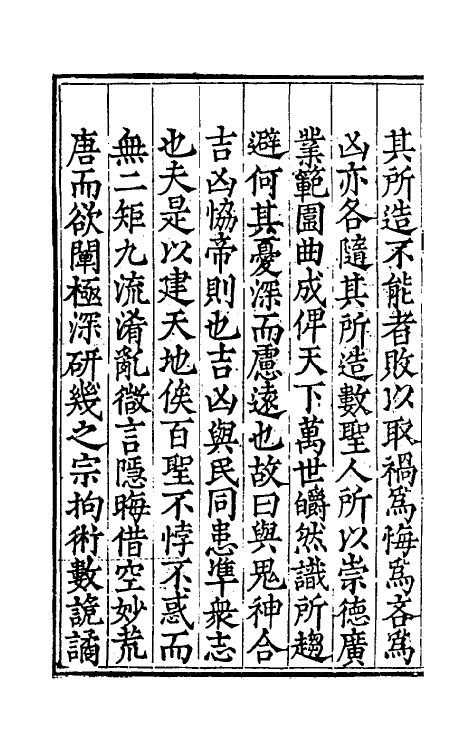 其所造不能者敗以取禍爲悔爲吝爲
凶亦各隨其所造數聖人所以崇德廣
業範圍曲成俾天下萬世皭然識所趨
避何其憂深而慮遠也故曰與鬼神合
吉凶恊帝則也吉凶與民同患準衆志
也夫是以建天地俟百聖不悖不惑而
無二矩九流淆亂微言隱晦借空妙荒
唐而欲闡極深研幾之宗拘術數詭譎